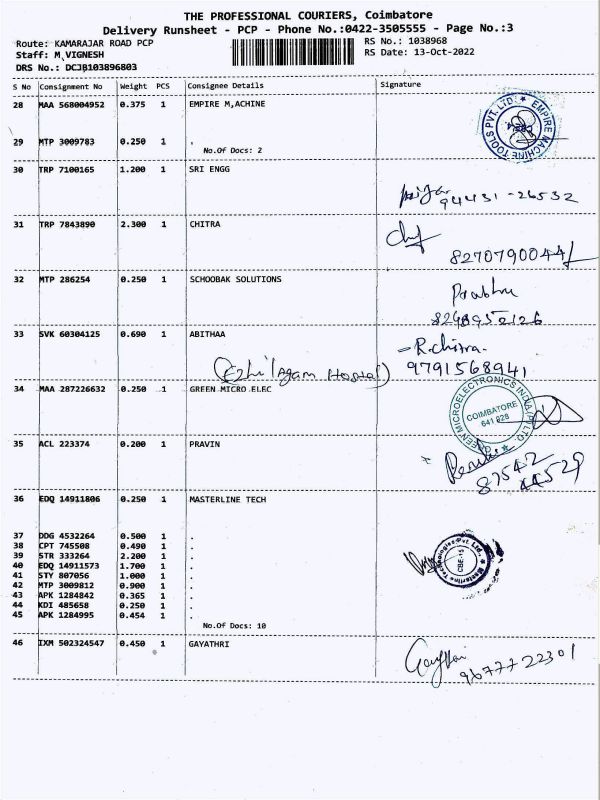 THE PROFESSIONAL COURIERS, Coimbatore
Delivery Runsheet - PCP - Phone No.:0422-3505555 - Page No.:3
Route: KAMARAJAR ROAD PCP
RS No.: 1038968
Staff: M VIGNESH
RS Date: 13-Oct-2022
DRS No.: DCJB103896803
S No Consignment No Weight PCS Consignee Details Signature
28 MAA 568004952 0.375 1 EMPIRE M,ACHINE
EMPIRE MACHINE TOOLS PVT. LTD.
29 MTP 3009783 0.250 1 .
No.Of Docs: 2
30 TRP 7100165 1.200 1 SRI ENGG
94431-26532
31 TRP 7843890 2.300 1 CHITRA
8270790044
32 MTP 286254 0.250 1 SCHOOBAK SOLUTIONS
Prabhu
8248952126
33 SVK 60304125 0.690 1 ABITHAA
R.chitra.
(Ezhilagam Hostel) 9791568941
34 MAA 287226632 0.250 1 GREEN MICRO ELEC
GREEN MICROELECTRONICS INDIA (P) LTD.
COIMBATORE
641 028
35 ACL 223374 0.200 1 PRAVIN
87542
44529
36 EDQ 14911806 0.250 1 MASTERLINE TECH
Masterline Technologies Pvt. Ltd.,
CBE-15
37 DDG 4532264 0.500 1 .
38 CPT 745508 0.490 1 .
39 STR 333264 2.200 1 .
40 EDQ 14911573 1.700 1 .
41 STY 807056 1.000 1 .
42 MTP 3009812 0.900 1 .
43 APK 1284842 0.365 1 .
44 KDI 485658 0.250 1 .
45 APK 1284995 0.454 1 .
No.Of Docs: 10
46 IXM 502324547 0.450 1 GAYATHRI
9677722301